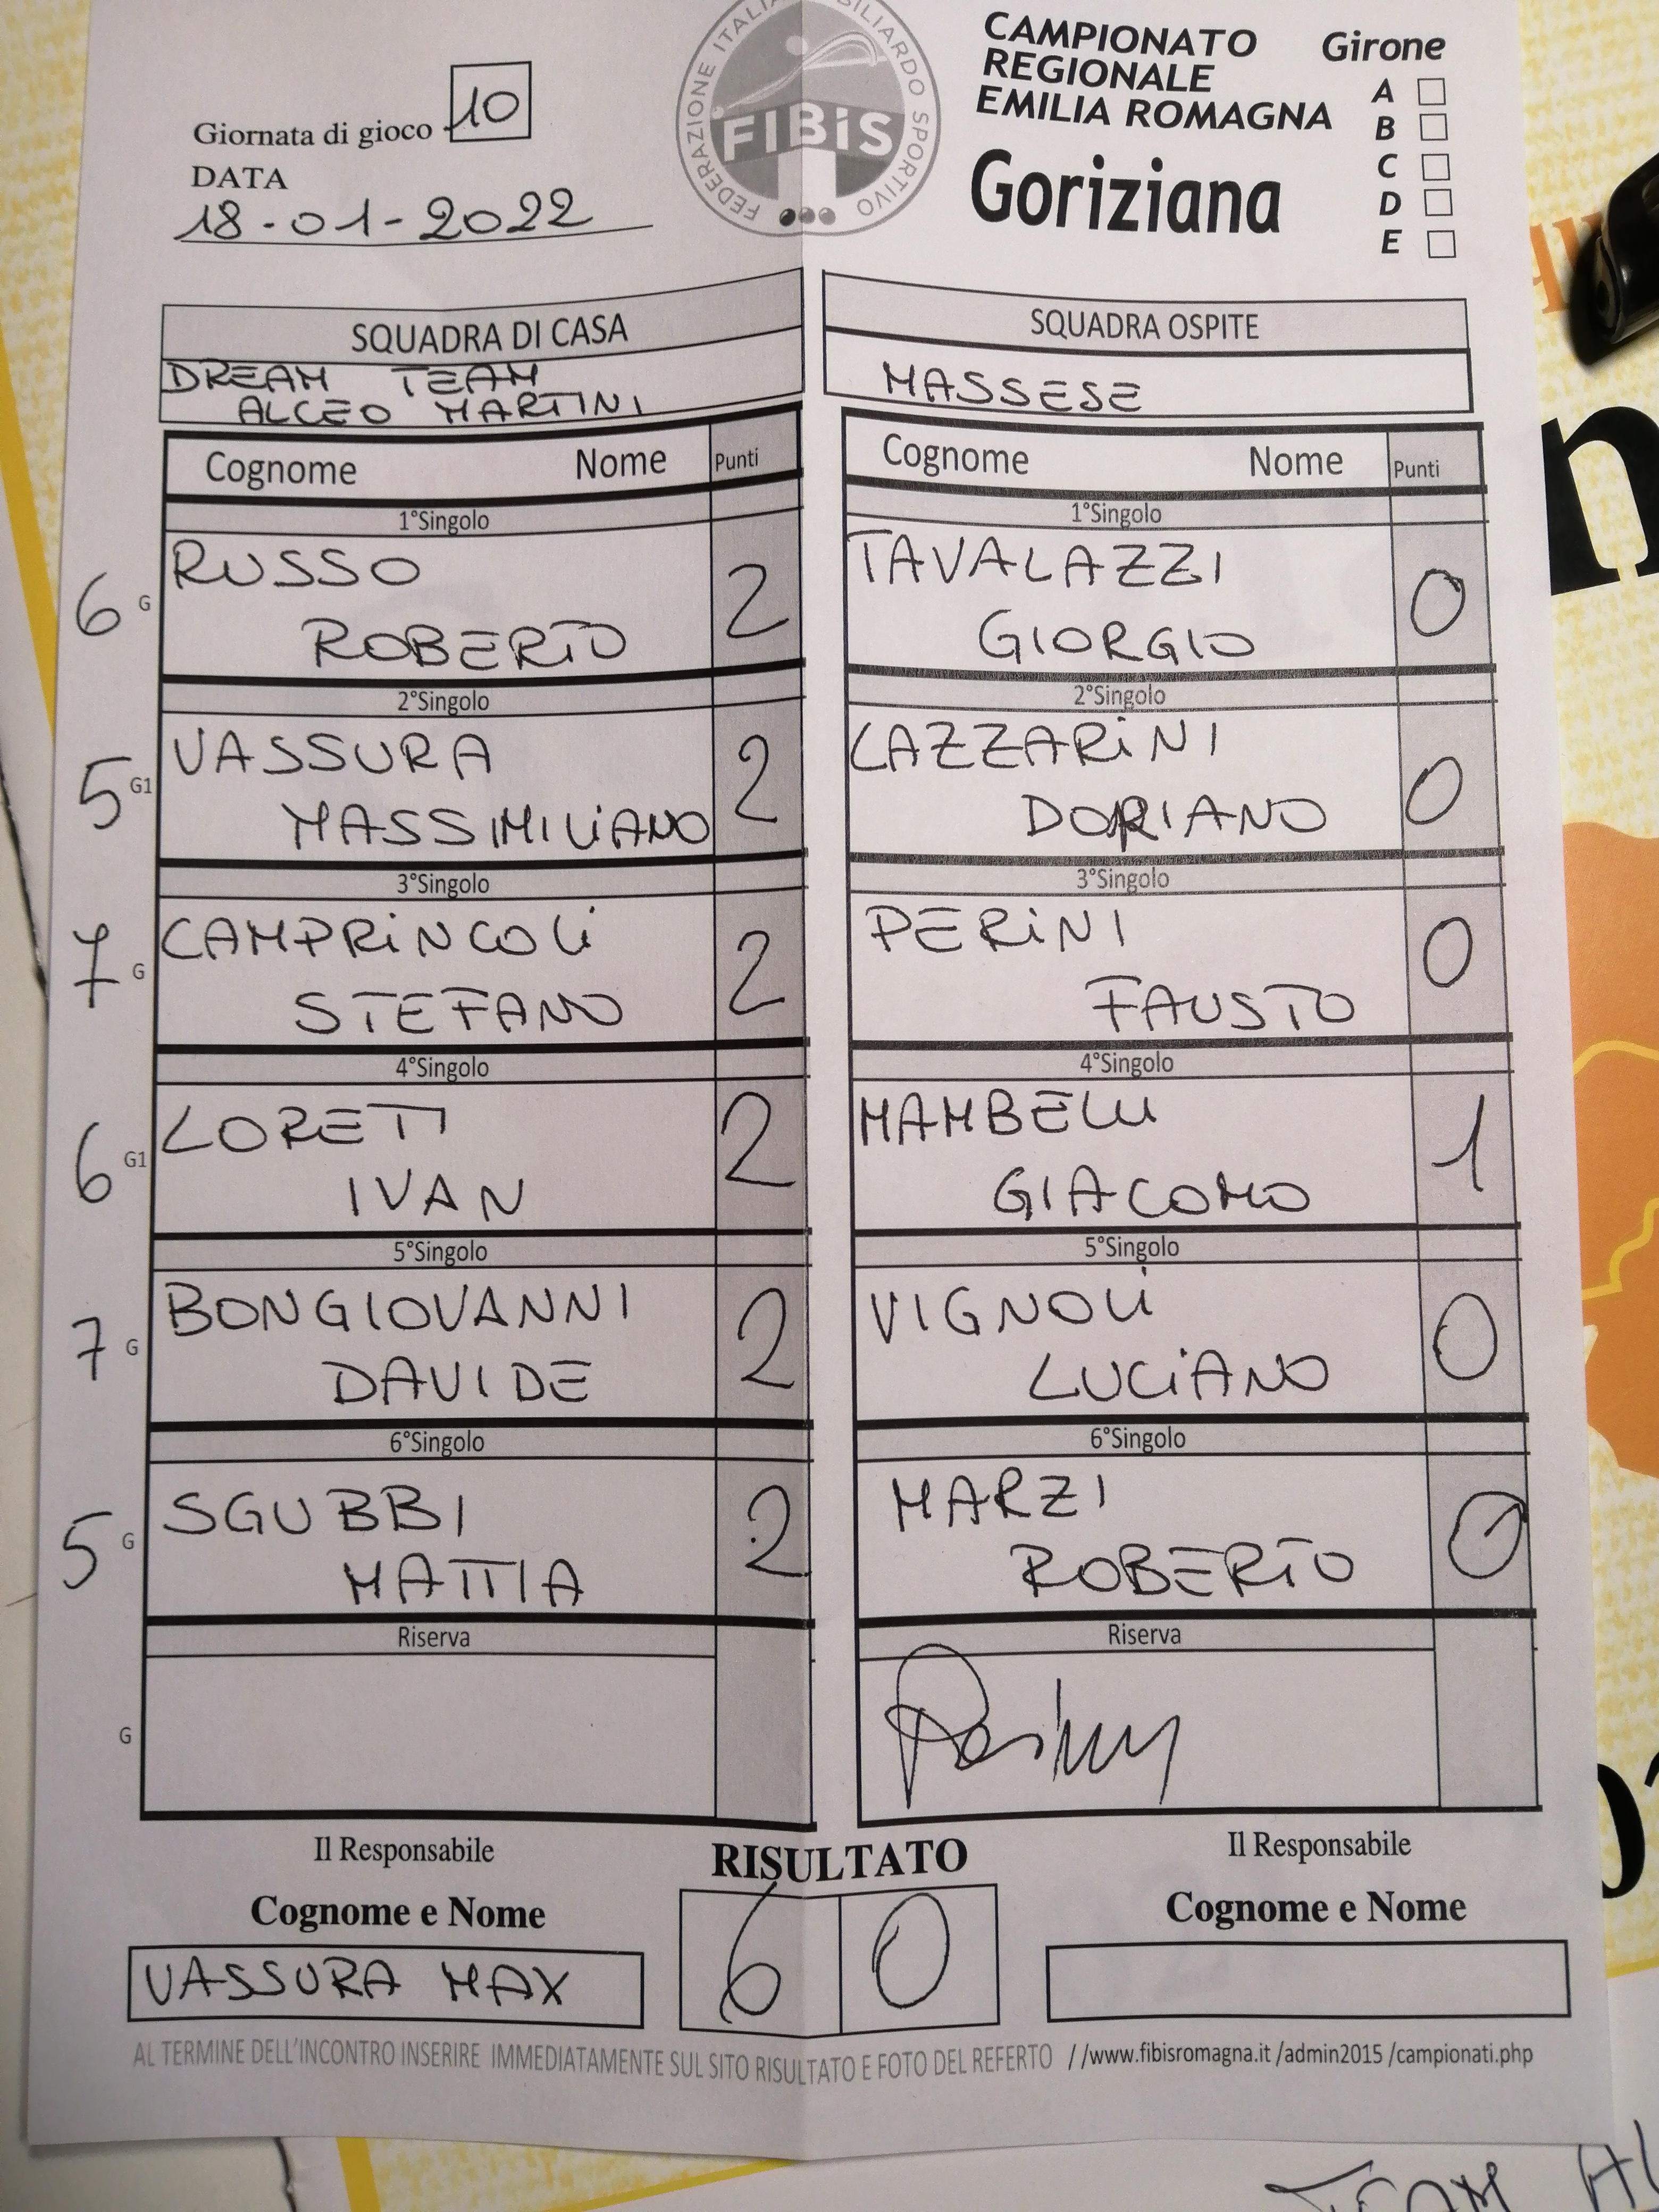 Giornata di gioco 10
DATA
18-01-2022
FEDERAZIONE ITALIANA BILIARDO SPORTIVO
FIBiS
CAMPIONATO
REGIONALE
EMILIA ROMAGNA
Goriziana
Girone
A
B
C
D
E
SQUADRA DI CASA
DREAM TEAM
ALCEO MARTINI
SQUADRA OSPITE
MASSESE
Cognome Nome Punti
Cognome Nome Punti
1°Singolo
1°Singolo
6 G RUSSO
ROBERTO 2
TAVALAZZI
GIORGIO 0
2°Singolo
2°Singolo
5 G1 VASSURA
MASSIMILIANO 2
LAZZARINI
DORIANO 0
3°Singolo
3°Singolo
7 G CAMPRINCOLI
STEFANO 2
PERINI
FAUSTO 0
4°Singolo
4°Singolo
6 G1 LORETI
IVAN 2
MAMBELLI
GIACOMO 1
5°Singolo
5°Singolo
7 G BONGIOVANNI
DAVIDE 2
VIGNOLI
LUCIANO 0
6°Singolo
6°Singolo
5 G SGUBBI
MATTIA 2
MARZI
ROBERTO 0
Riserva
Riserva
G
Il Responsabile
RISULTATO
Il Responsabile
Cognome e Nome
6 0
Cognome e Nome
VASSURA MAX
AL TERMINE DELL'INCONTRO INSERIRE IMMEDIATAMENTE SUL SITO RISULTATO E FOTO DEL REFERTO //www.fibisromagna.it /admin2015 /campionati.php
TEAM